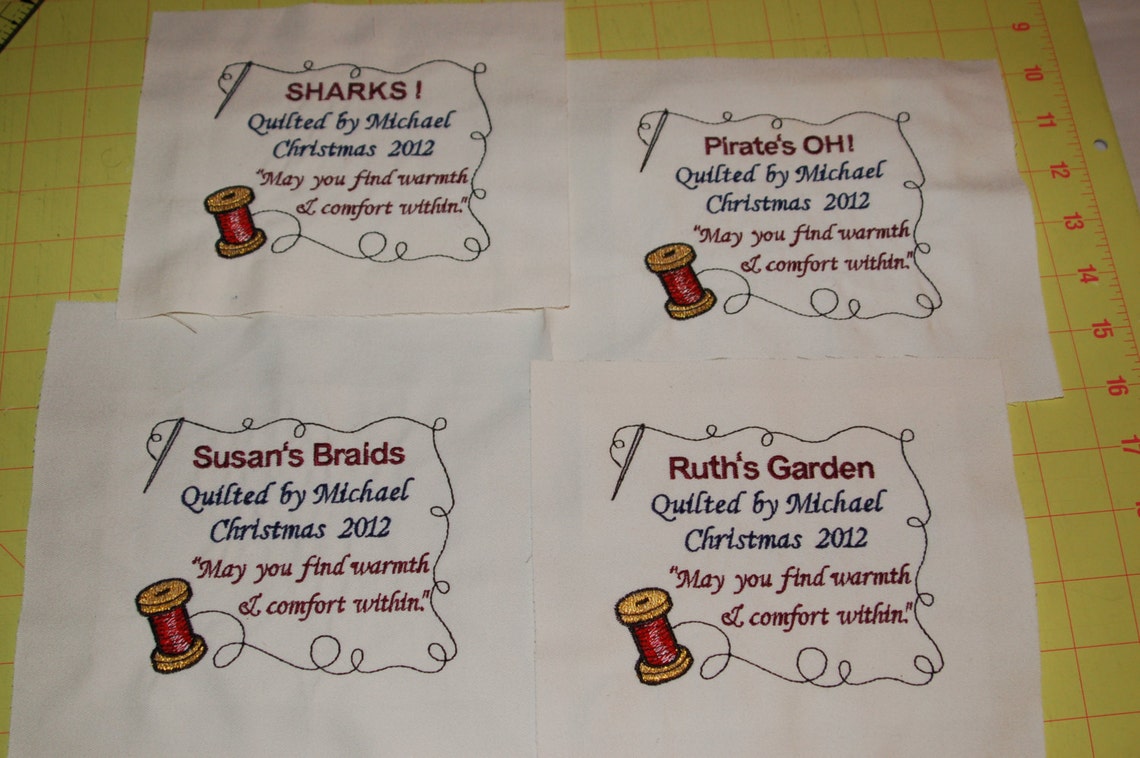 SHARKS !
Quilted by Michael
Christmas 2012
"May you find warmth
& comfort within."
Pirate's OH!
Quilted by Michael
Christmas 2012
"May you find warmth
& comfort within."
Susan's Braids
Quilted by Michael
Christmas 2012
"May you find warmth
& comfort within."
Ruth's Garden
Quilted by Michael
Christmas 2012
"May you find warmth
& comfort within."
9
10
11
12
13
14
15
16
17